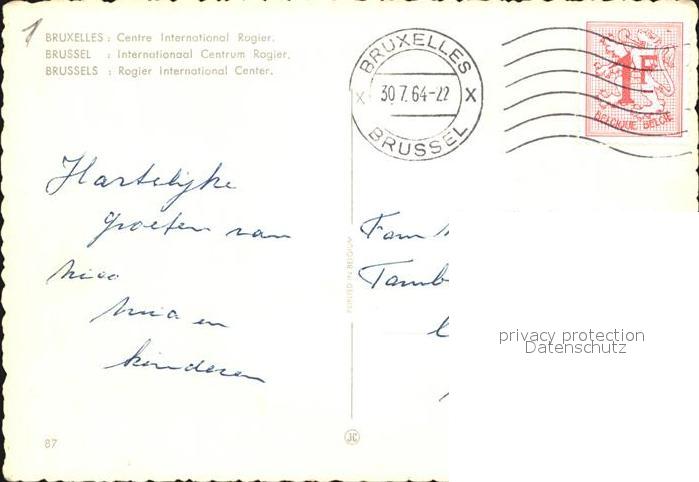 1
BRUXELLES : Centre International Rogier.
BRUSSEL : Internationaal Centrum Rogier.
BRUSSELS : Rogier International Center.
BRUXELLES
X 30.7.64-22 X
BRUSSEL
1F
BELGIQUE BELGIE
Hartelijke
groeten van
Nico
Mia en
kinderen
PRINTED IN BELGIUM
Fam
Tamb
privacy protection
Datenschutz
87
JC